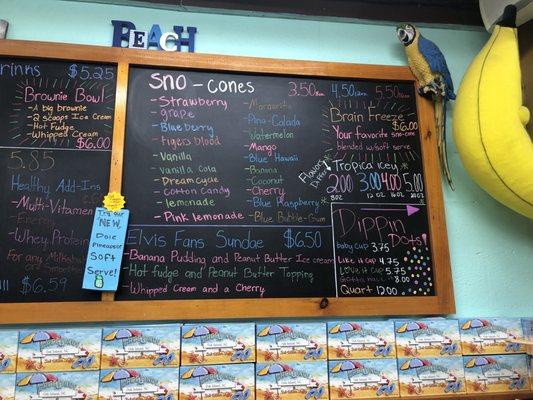 BEACH
Drinks $5.25
Brownie Bowl
-A big brownie
-2 scoops Ice cream
-Hot Fudge
-Whipped Cream
$6.00
5.85
Healthy Add-Ins
-Multi-Vitamin
-Energy
-Whey Protein
For any Milkshake
or Smoothie
$6.59
Try our
"NEW"
Dole
Pineapple
Soft
Serve!
Sno-Cones
3.50 4.50 5.50
-Strawberry
-grape
-Blueberry
-tigers blood
-Vanilla
-Vanilla Cola
-Dreamcycle
-Cotton candy
-lemonade
-Pink lemonade
-Margarita
-Pina-Colada
-Watermelon
-Mango
-Blue Hawaii
-Banana
-Coconut
-Cherry
-Blue Raspberry
-Lime
-Blue Bubble-Gum
Brain Freeze
$6.00
Your favorite sno-cone
blended w/soft serve
Tropica Icey
2.00 3.00 4.00 5.00
8oz 12oz 16oz
Elvis Fans Sundae $6.50
-Banana Pudding and Peanut Butter Ice cream
-Hot fudge and Peanut Butter Topping
-Whipped Cream and a Cherry
Dippin Dots!
baby cup 3.75
Like it cup 4.75
Love it cup 5.75
Gotta have 8.00
Quart 12.00